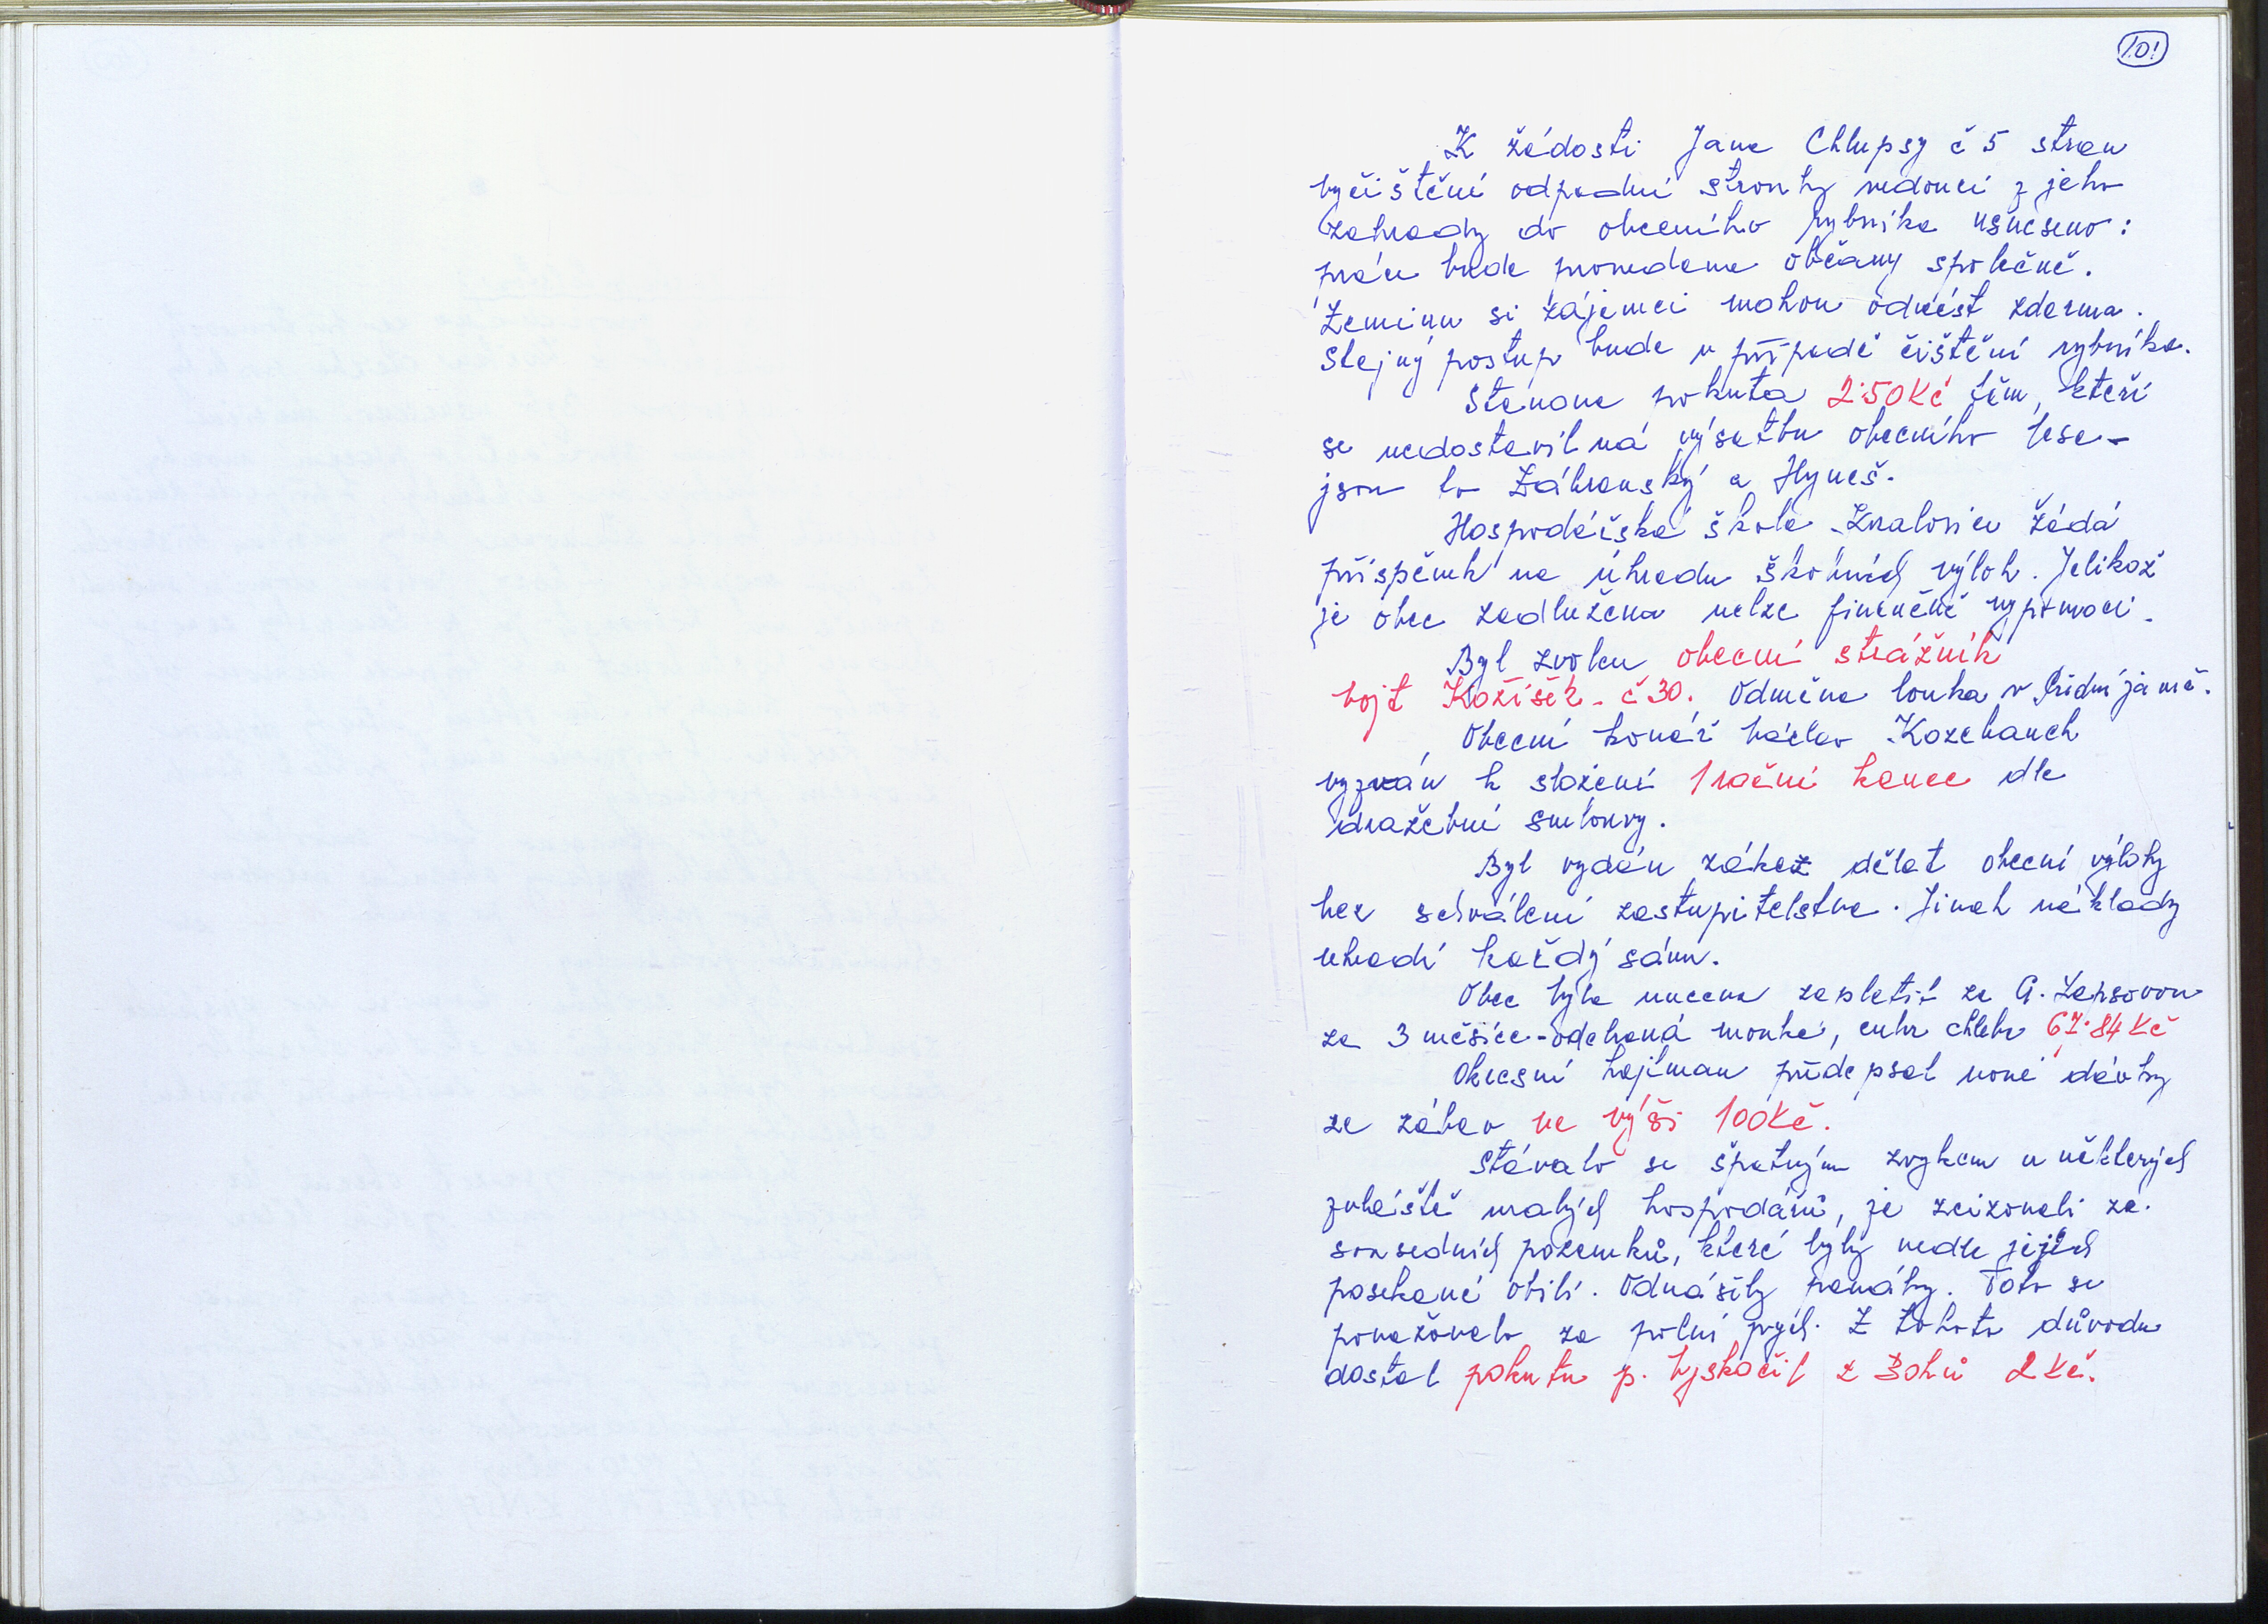 101
K žádosti Jana Chlupsy č 5 stran
vyčištění odpadní strouhy vedoucí z jeho
zahrady do obecního rybníka usneseno:
práce bude provedena občany společně.
Zeminu si zájemci mohou odvést zdarma.
Stejný postup bude v případě čištění rybníka.
Stanova pokuta 2·50Kč těm, kteří
se nedostavil na výsatbu obecního lesa-
jsou to Zábranský a Hyneš.
Hospodářská škola Kralovice žádá
příspěvek na úhradu školních výloh. Jelikož
je obec zadlužena nelze finančně vypomoci.
Byl zvolen obecní strážník
Vojt Kožíšek - č 30. Odměna louka v jámě.
Obecní kovář Václav Kozelbauch
vyzván k složení 1 roční kauce dle
dražební smlouvy.
Byl vydán zákaz dělat obecní výlohy
bez schválení zastupitelstva. Jinak náklady
uhradí každý sám.
Obec byla nucena zaplatit za A. Zapsovou
za 3 měsíce - odebraná mouka, cukr chleba 67·84 Kč
Okresní hejtman předepsal nové dávky
ze zábav ve výši 100Kč.
Stávalo se špatným zvykem u některých
zvláště malých hospodářů, že zcizovali ze
sousedních pozemků, které byly vedle jejich
posekané obilí. Odnášely panáky. Toto se
považovalo za polní pych. Z tohoto důvodu
dostal pokutu p. Vyskočil z Bohů 2 Kč.